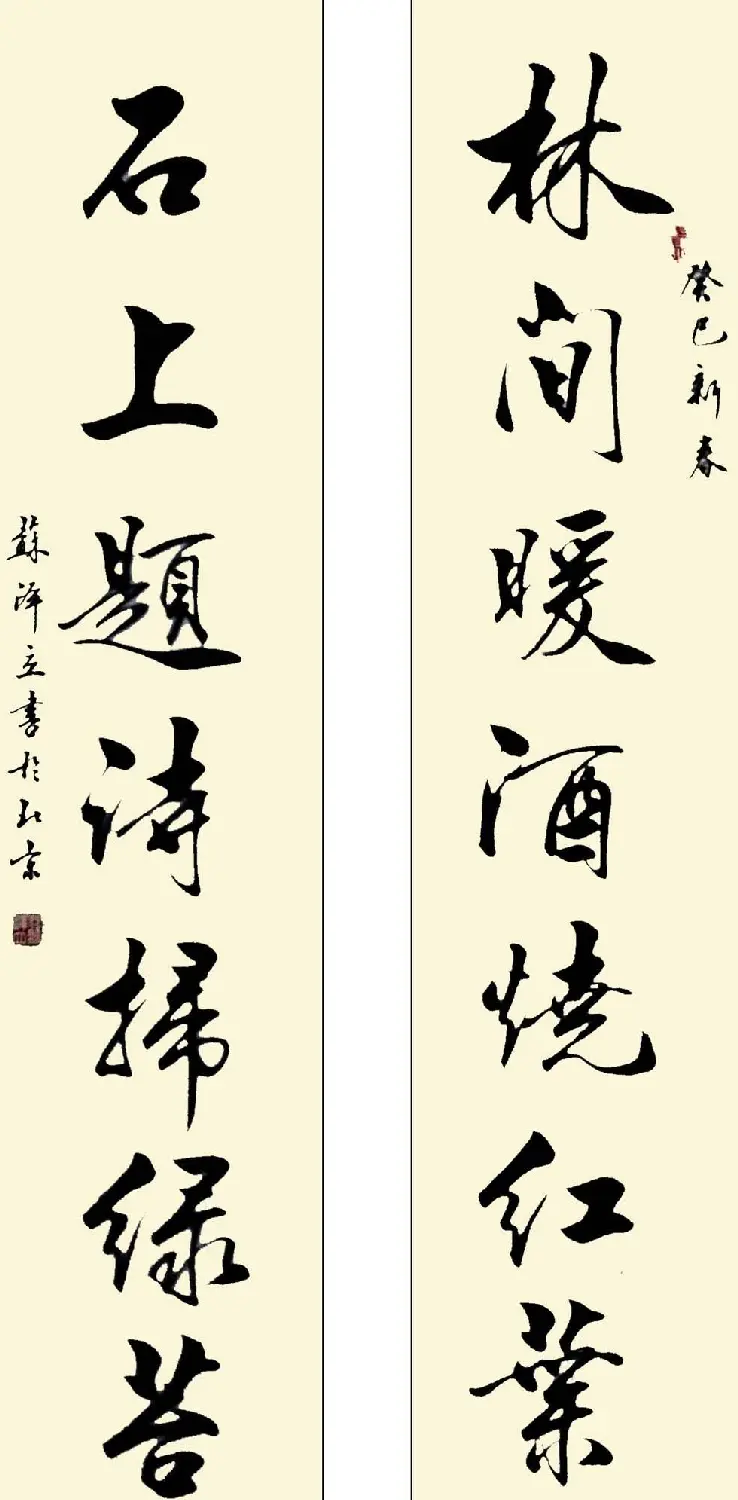 林间暖酒燒红葉
癸巳新春
石上題詩掃绿苔
蘇泽立書於北京